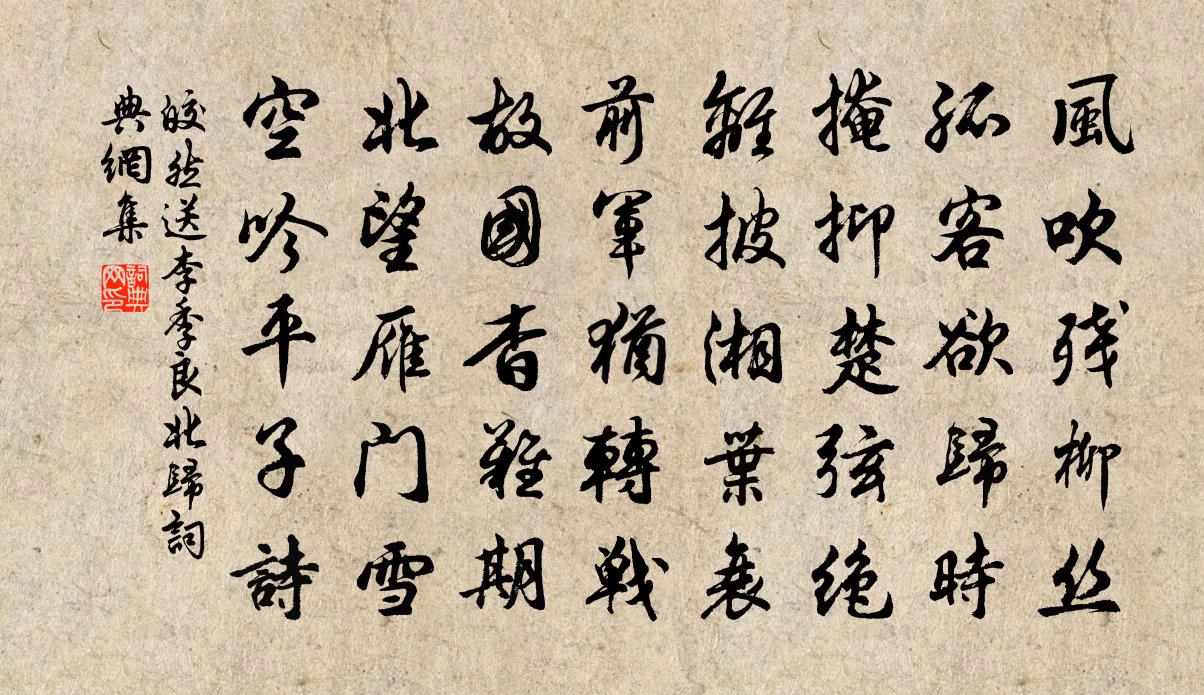 風吹残柳丝
孤客欲歸時
掩抑楚弦绝
離披湘葉衰
前軍猶轉戦
故國杳難期
北望雁门雪
空吟平子詩
皎然送李季良北歸詞
典網集
詞典网印